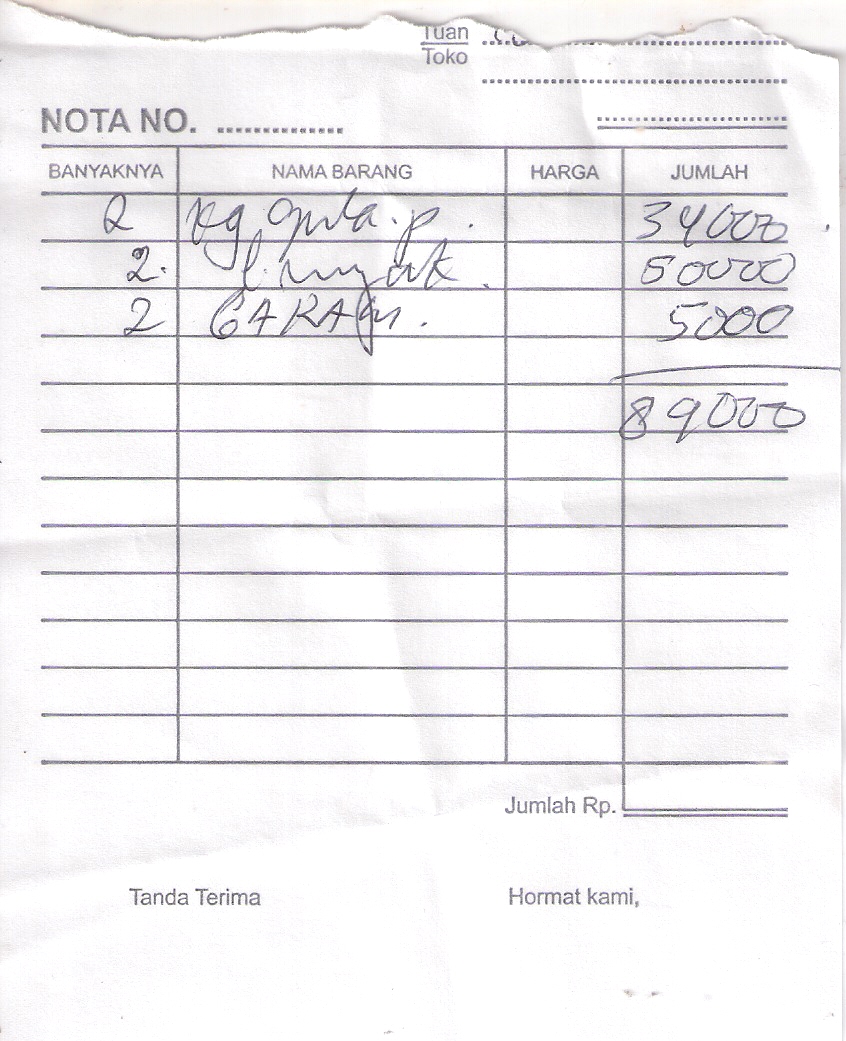 Tuan
Toko
NOTA NO. ..............
BANYAKNYA NAMA BARANG HARGA JUMLAH
2 kg gula.p. 34000
2. l. minyak. 50000
2 GARAM. 5000
89000
Jumlah Rp.
Tanda Terima Hormat kami,